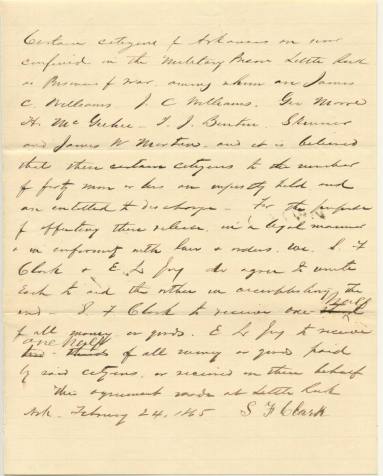 Certain citizens of Arkansas are now
confined in the Military Prison Little Rock
as Prisoners of War, among whom are James
C. Williams. J. C Williams. Geo Moore
H. McGehee. T. J. Benton. Skinner
and James W Martin, and it is believed
that these certain citizens to the number
of forty more or less are improperly held and
are entitled to discharge. For the purpose
of effecting their release, in a legal manner
& in conformity with law & orders. We. S. F
Clark & E. L do agree to unite
Each to aid the other in accomplishing the
end. S. F Clark to receive one half
of all money or goods. E L to receive
one half of all money or goods paid
by said citizens, or received in their behalf
This agreement made at Little Rock
Ark. February 24, 1865 S F Clark